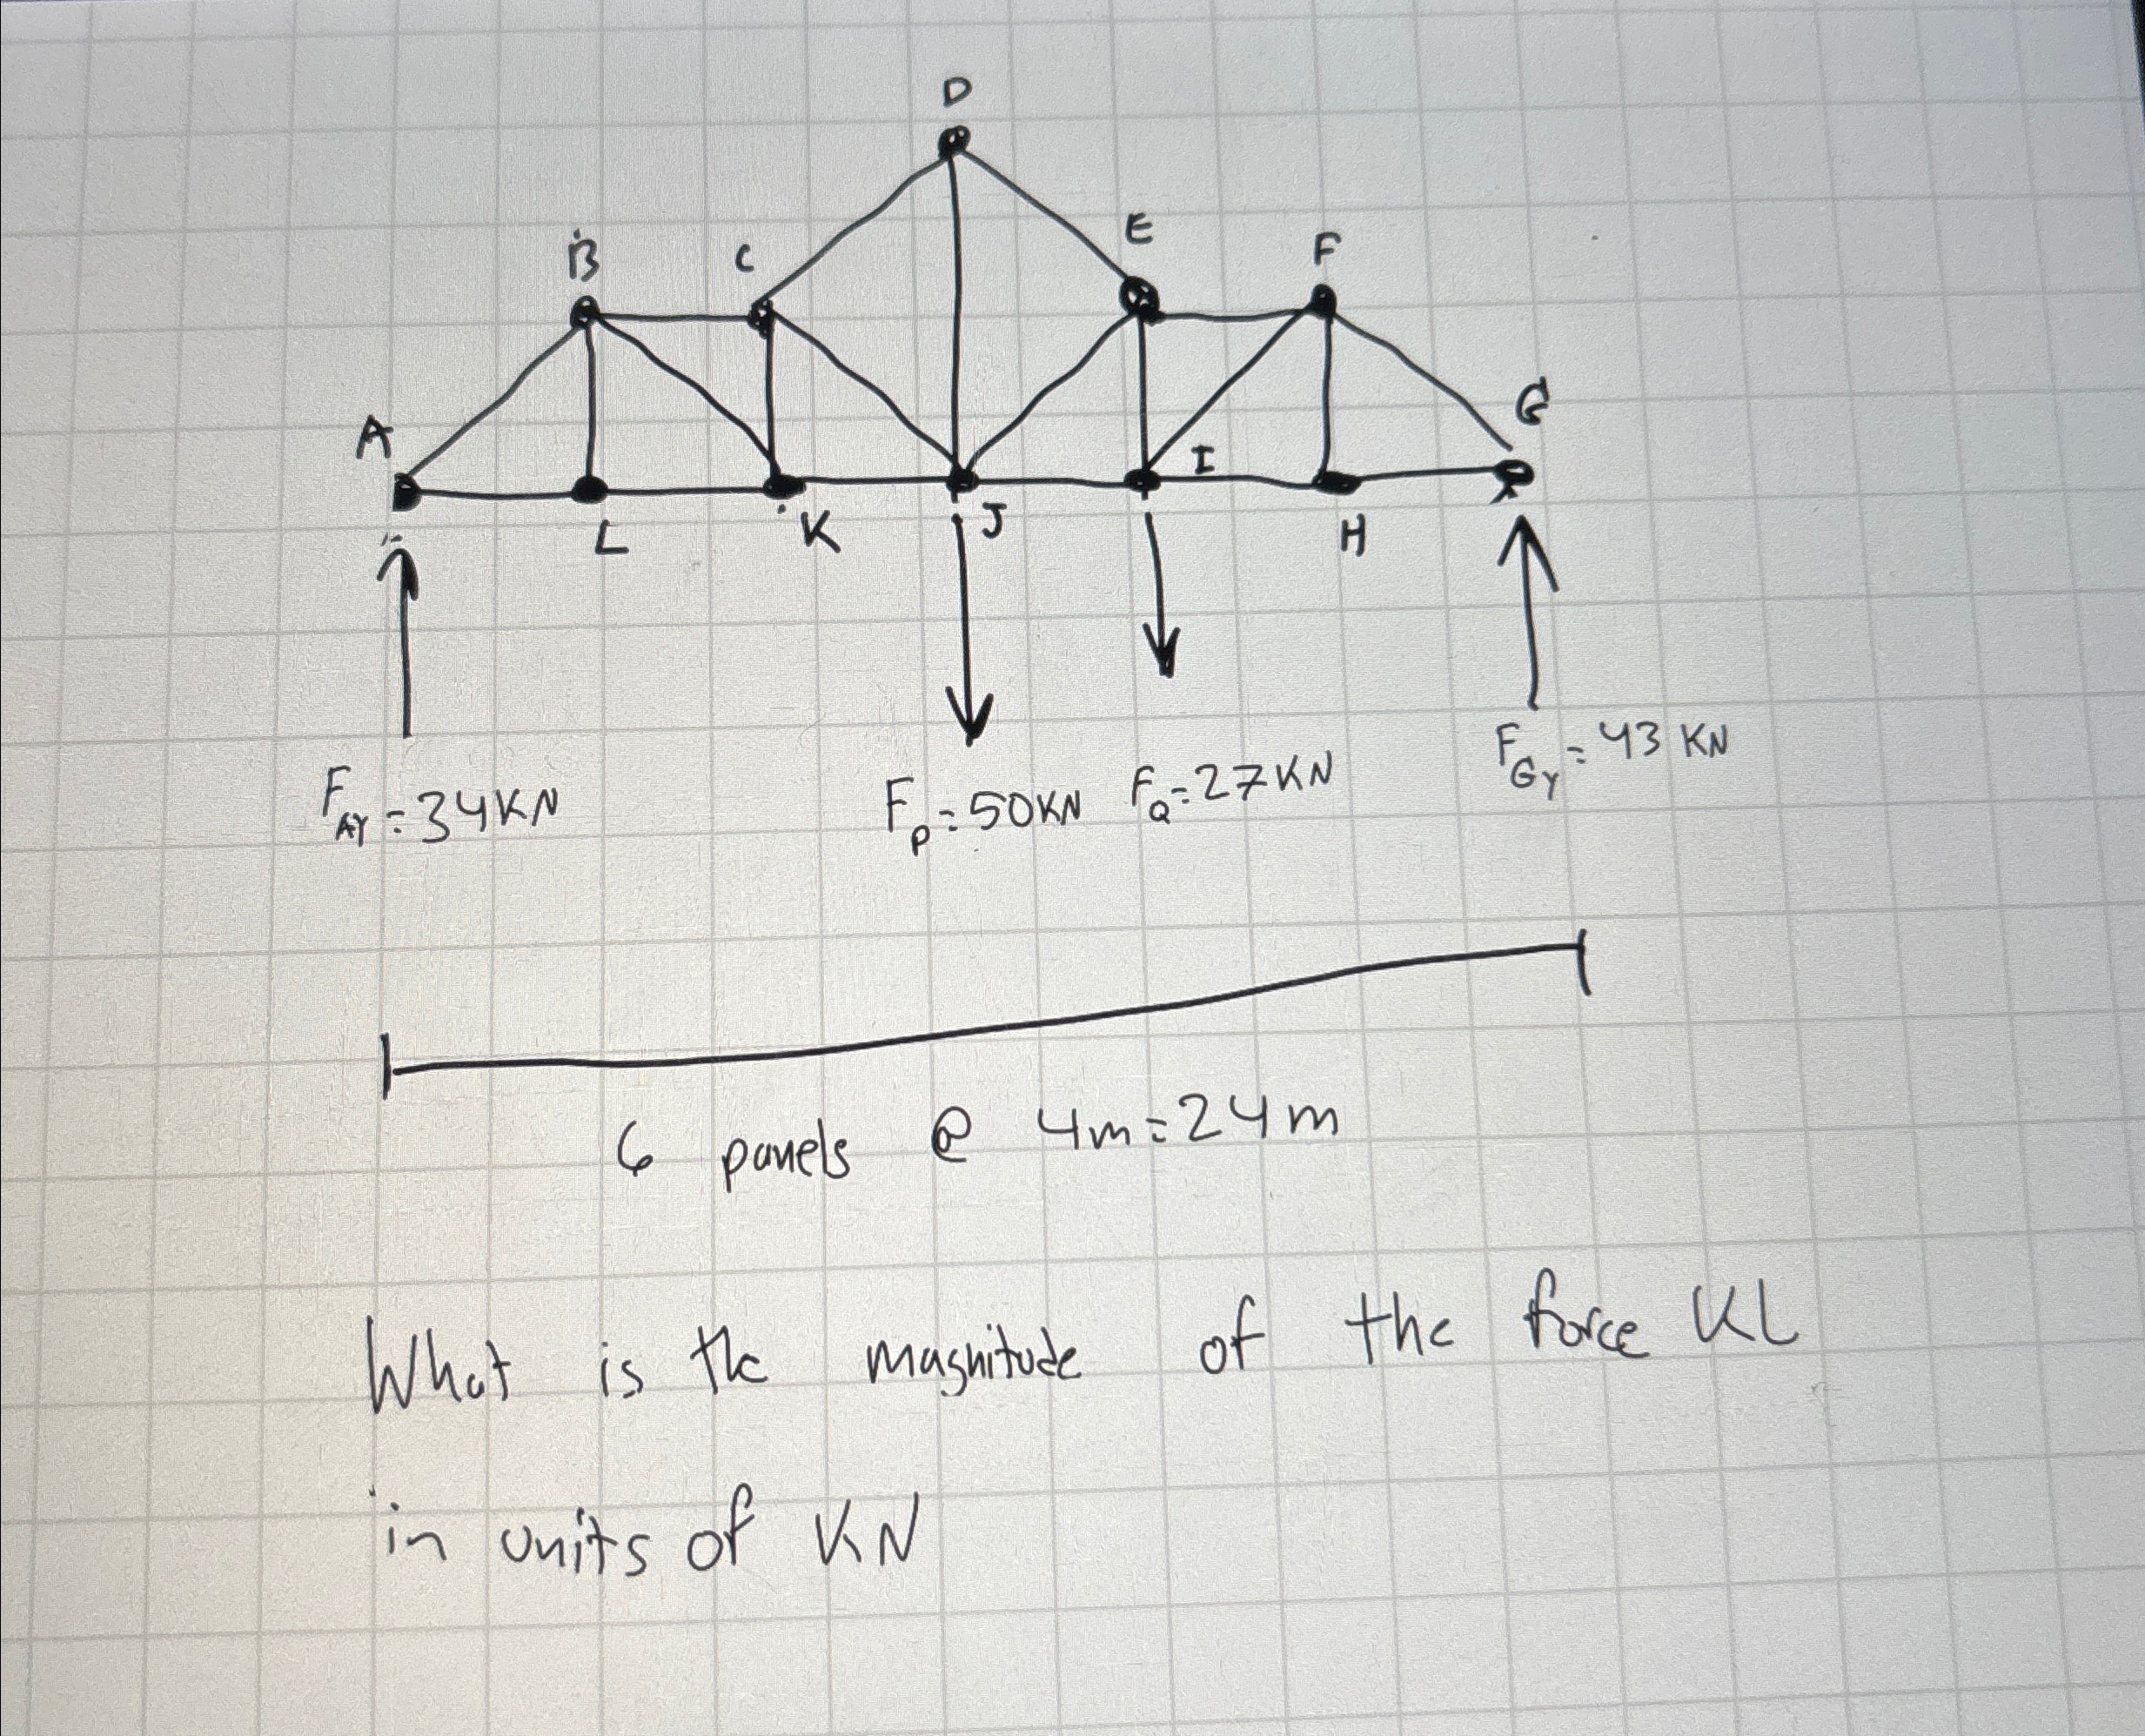 D
B C E F
A G
I
L K J H
F_AY = 34KN F_P = 50KN F_Q = 27KN F_GY = 43 KN
6 panels @ 4m = 24m
What is the magnitude of the force KL
in units of KN